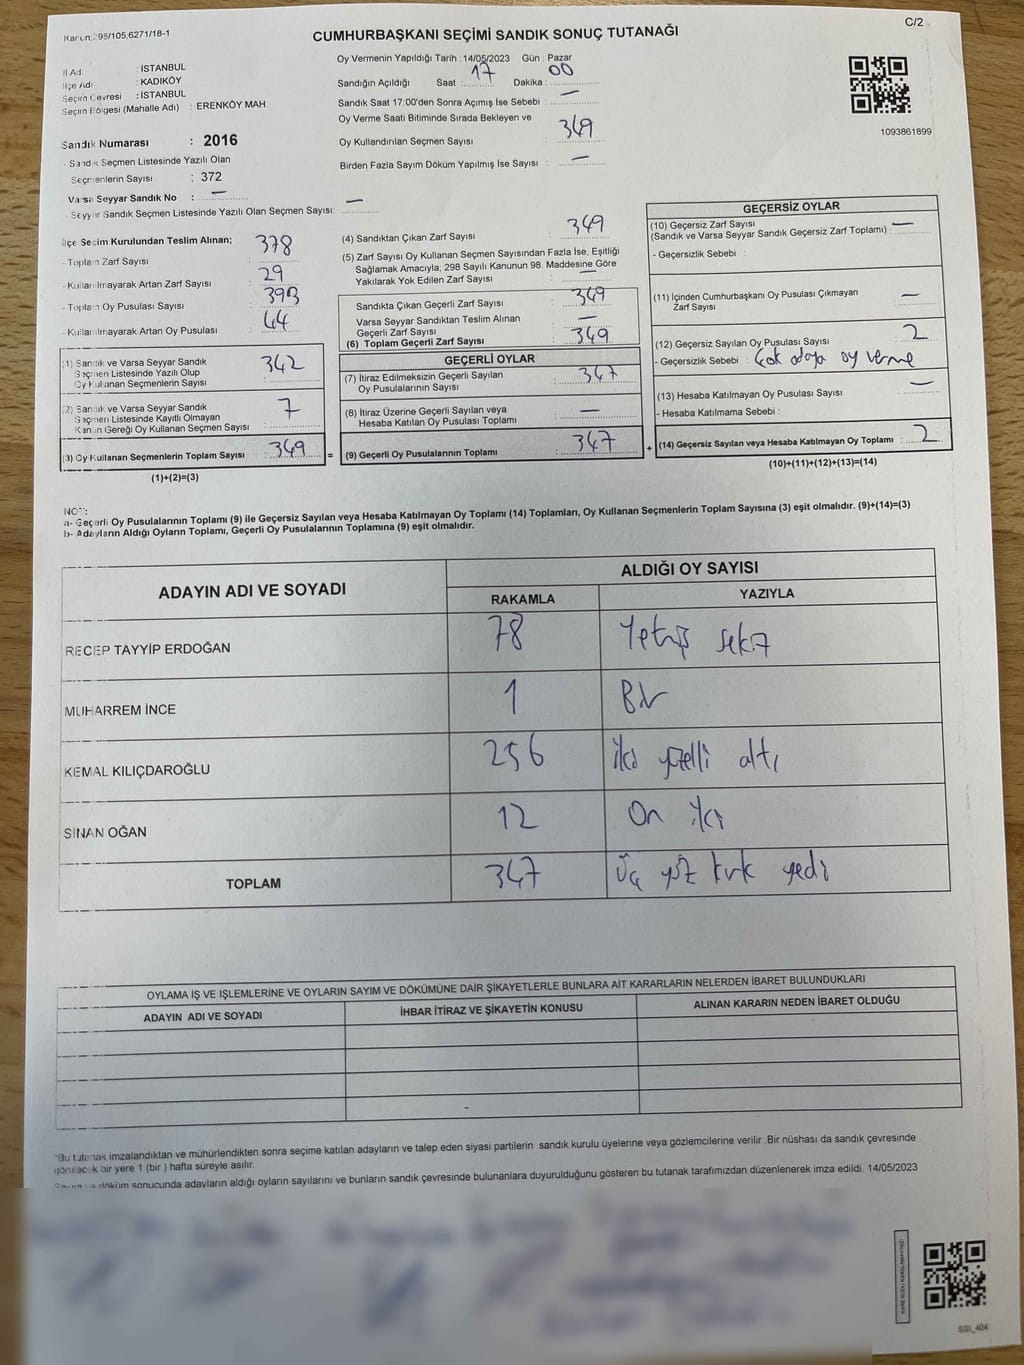 Kanun:298/105,6271/18-1
C/2
CUMHURBAŞKANI SEÇİMİ SANDIK SONUÇ TUTANAĞI
İl Adı : İSTANBUL
İlçe Adı : KADIKÖY
Seçim Çevresi : İSTANBUL
Seçim Bölgesi (Mahalle Adı) : ERENKÖY MAH.
Sandık Numarası : 2016
- Sandık Seçmen Listesinde Yazılı Olan
Seçmenlerin Sayısı : 372
Varsa Seyyar Sandık No : —
- Seyyar Sandık Seçmen Listesinde Yazılı Olan Seçmen Sayısı: —
Oy Vermenin Yapıldığı Tarih :14/05/2023 Gün : Pazar
Sandığın Açıldığı Saat : 17 Dakika : 00
Sandık Saat 17:00'den Sonra Açımış İse Sebebi : —
Oy Verme Saati Bitiminde Sırada Bekleyen ve
Oy Kullandırılan Seçmen Sayısı : 349
Birden Fazla Sayım Döküm Yapılmış İse Sayısı : —
1093861899
İlçe Seçim Kurulundan Teslim Alınan;
- Toplam Zarf Sayısı : 378
- Kullanılmayarak Artan Zarf Sayısı : 29
- Toplam Oy Pusulası Sayısı : 393
- Kullanılmayarak Artan Oy Pusulası : 44
(1) Sandık ve Varsa Seyyar Sandık
Seçmen Listesinde Yazılı Olup
Oy Kullanan Seçmenlerin Sayısı : 342
(2) Sandık ve Varsa Seyyar Sandık
Seçmen Listesinde Kayıtlı Olmayan
Kanun Gereği Oy Kullanan Seçmen Sayısı : 7
(3) Oy Kullanan Seçmenlerin Toplam Sayısı : 349 =
(1)+(2)=(3)
(4) Sandıktan Çıkan Zarf Sayısı : 349
(5) Zarf Sayısı Oy Kullanan Seçmen Sayısından Fazla İse, Eşitliği
Sağlamak Amacıyla, 298 Sayılı Kanunun 98. Maddesine Göre
Yakılarak Yok Edilen Zarf Sayısı : —
Sandıkta Çıkan Geçerli Zarf Sayısı : 349
Varsa Seyyar Sandıktan Teslim Alınan
Geçerli Zarf Sayısı : —
(6) Toplam Geçerli Zarf Sayısı : 349
GEÇERLİ OYLAR
(7) İtiraz Edilmeksizin Geçerli Sayılan
Oy Pusulalarının Sayısı : 347
(8) İtiraz Üzerine Geçerli Sayılan veya
Hesaba Katılan Oy Pusulası Toplamı : —
(9) Geçerli Oy Pusulalarının Toplamı : 347 +
GEÇERSİZ OYLAR
(10) Geçersiz Zarf Sayısı
(Sandık ve Varsa Seyyar Sandık Geçersiz Zarf Toplamı) : —
- Geçersizlik Sebebi :
(11) İçinden Cumhurbaşkanı Oy Pusulası Çıkmayan
Zarf Sayısı : —
(12) Geçersiz Sayılan Oy Pusulası Sayısı : 2
- Geçersizlik Sebebi : Çok adaya oy verme
(13) Hesaba Katılmayan Oy Pusulası Sayısı : —
- Hesaba Katılmama Sebebi :
(14) Geçersiz Sayılan veya Hesaba Katılmayan Oy Toplamı : 2
(10)+(11)+(12)+(13)=(14)
NOT:
a- Geçerli Oy Pusulalarının Toplamı (9) ile Geçersiz Sayılan veya Hesaba Katılmayan Oy Toplamı (14) Toplamları, Oy Kullanan Seçmenlerin Toplam Sayısına (3) eşit olmalıdır. (9)+(14)=(3)
b- Adayların Aldığı Oyların Toplamı, Geçerli Oy Pusulalarının Toplamına (9) eşit olmalıdır.
ADAYIN ADI VE SOYADI
ALDIĞI OY SAYISI
RAKAMLA YAZIYLA
RECEP TAYYİP ERDOĞAN 78 Yetmiş sekiz
MUHARREM İNCE 1 Bir
KEMAL KILIÇDAROĞLU 256 İki yüzelli altı
SİNAN OĞAN 12 On iki
TOPLAM 347 Üç yüz kırk yedi
OYLAMA İŞ VE İŞLEMLERİNE VE OYLARIN SAYIM VE DÖKÜMÜNE DAİR ŞİKAYETLERLE BUNLARA AİT KARARLARIN NELERDEN İBARET BULUNDUKLARI
ADAYIN ADI VE SOYADI İHBAR İTİRAZ VE ŞİKAYETİN KONUSU ALINAN KARARIN NEDEN İBARET OLDUĞU
*Bu tutanak imzalandıktan ve mühürlendikten sonra seçime katılan adayların ve talep eden siyasi partilerin sandık kurulu üyelerine veya gözlemcilerine verilir .Bir nüshası da sandık çevresinde
görülecek bir yere 1 (bir ) hafta süreyle asılır.
Sayım ve döküm sonucunda adayların aldığı oyların sayılarını ve bunların sandık çevresinde bulunanlara duyurulduğunu gösteren bu tutanak tarafımızdan düzenlenerek imza edildi. 14/05/2023
KARE KODU KARALAMAYINIZ!
SSI_404